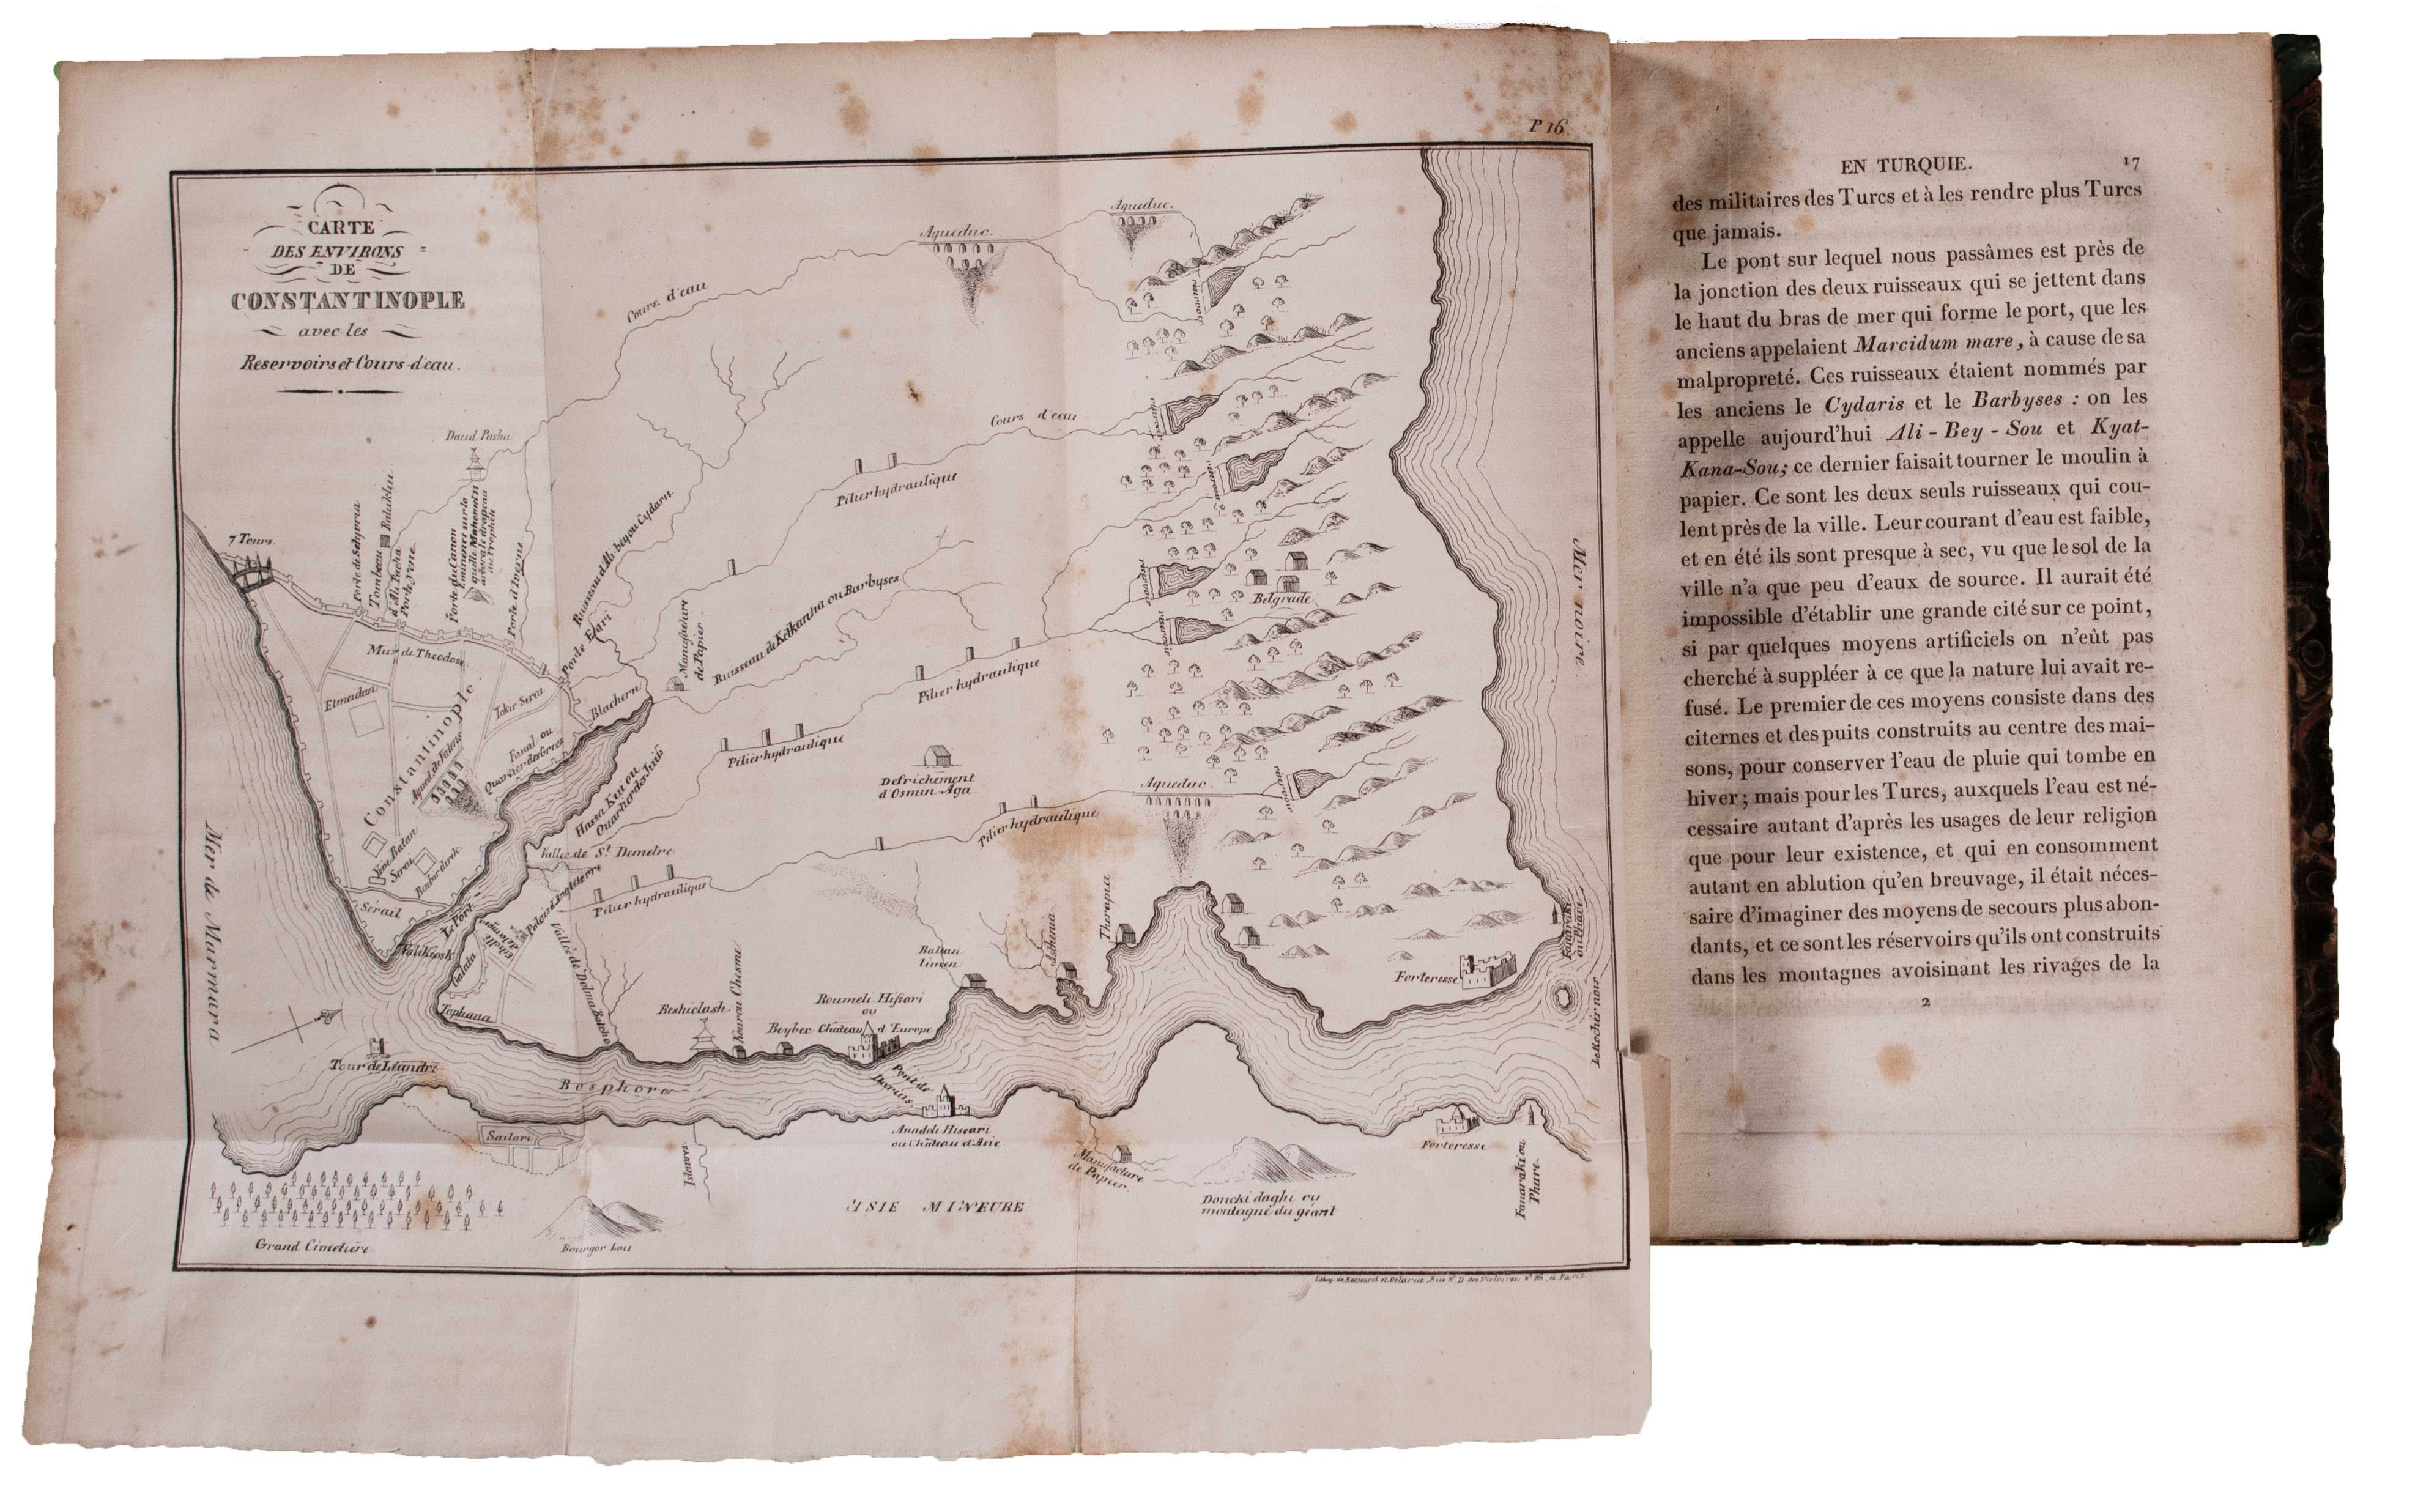 P 16.
CARTE
DES ENVIRONS
DE
CONSTANTINOPLE
avec les
Reservoirs et Cours-d'eau.
Aqueduc.
Aqueduc.
Cours d'eau
Cours d'eau
Daud Pasha
Pilier hydraulique
7 Tours.
Porte de Selyvria
Tombeau
d'Ali Pacha
Balukluı
Porte du Canon
Porte d'Ingrne
Ruisseau d'Ali bey ou Cydaris
Porte Egri
Manufacture
de Papier.
Ruisseau de Keikanha ou Barbyses
Belgrade
Mer noire
Mur de Theodose
Etmeidan
Tekir Serai
Blachern
Constantinople
Fanal ou
Quartier des Grecs
Pilier hydraulique
Pilier hydraulique
Defrichement
d'Osmin Aga
Aqueduc.
Pilier hydraulique
Vallée de St. Demetre
Pilier hydraulique
Mer de Marmara
Sérail
Le Port
Yali Kiosk
Galata
Palais d'Angleterre
Vallée de Dolma Batche
Tophana
Beshiclash
Kourou Chesme
Roumeli Hissari
ou
Beybec Château d'Europe
Baltan
limen
Therapia
Forteresse
Fanaraki
ou Phare
le Rocher noir
Tour de Léandre
Bosphore
Pont de
Darius
Anadoli Hissari
ou Château d'Asie
Scutari
Manufacture
de Papier.
Forteresse
Fanaraki ou
Phare.
ASIE MINEURE
Doncki daghi ou
montagne du géant
Grand Cimetière.
Bourgor Lou
Lithog. de Besnard et Delarue, Rue N. D. des Victoires, N° 16, a Paris.
EN TURQUIE. 17
des militaires des Turcs et à les rendre plus Turcs
que jamais.
Le pont sur lequel nous passâmes est près de
la jonction des deux ruisseaux qui se jettent dans
le haut du bras de mer qui forme le port, que les
anciens appelaient Marcidum mare, à cause de sa
malpropreté. Ces ruisseaux étaient nommés par
les anciens le Cydaris et le Barbyses : on les
appelle aujourd'hui Ali-Bey-Sou et Kyat-
Kana-Sou; ce dernier faisait tourner le moulin à
papier. Ce sont les deux seuls ruisseaux qui cou-
lent près de la ville. Leur courant d'eau est faible,
et en été ils sont presque à sec, vu que le sol de la
ville n'a que peu d'eaux de source. Il aurait été
impossible d'établir une grande cité sur ce point,
si par quelques moyens artificiels on n'eût pas
cherché à suppléer à ce que la nature lui avait re-
fusé. Le premier de ces moyens consiste dans des
citernes et des puits construits au centre des mai-
sons, pour conserver l'eau de pluie qui tombe en
hiver; mais pour les Turcs, auxquels l'eau est né-
cessaire autant d'après les usages de leur religion
que pour leur existence, et qui en consomment
autant en ablution qu'en breuvage, il était néces-
saire d'imaginer des moyens de secours plus abon-
dants, et ce sont les réservoirs qu'ils ont construits
dans les montagnes avoisinant les rivages de la
2